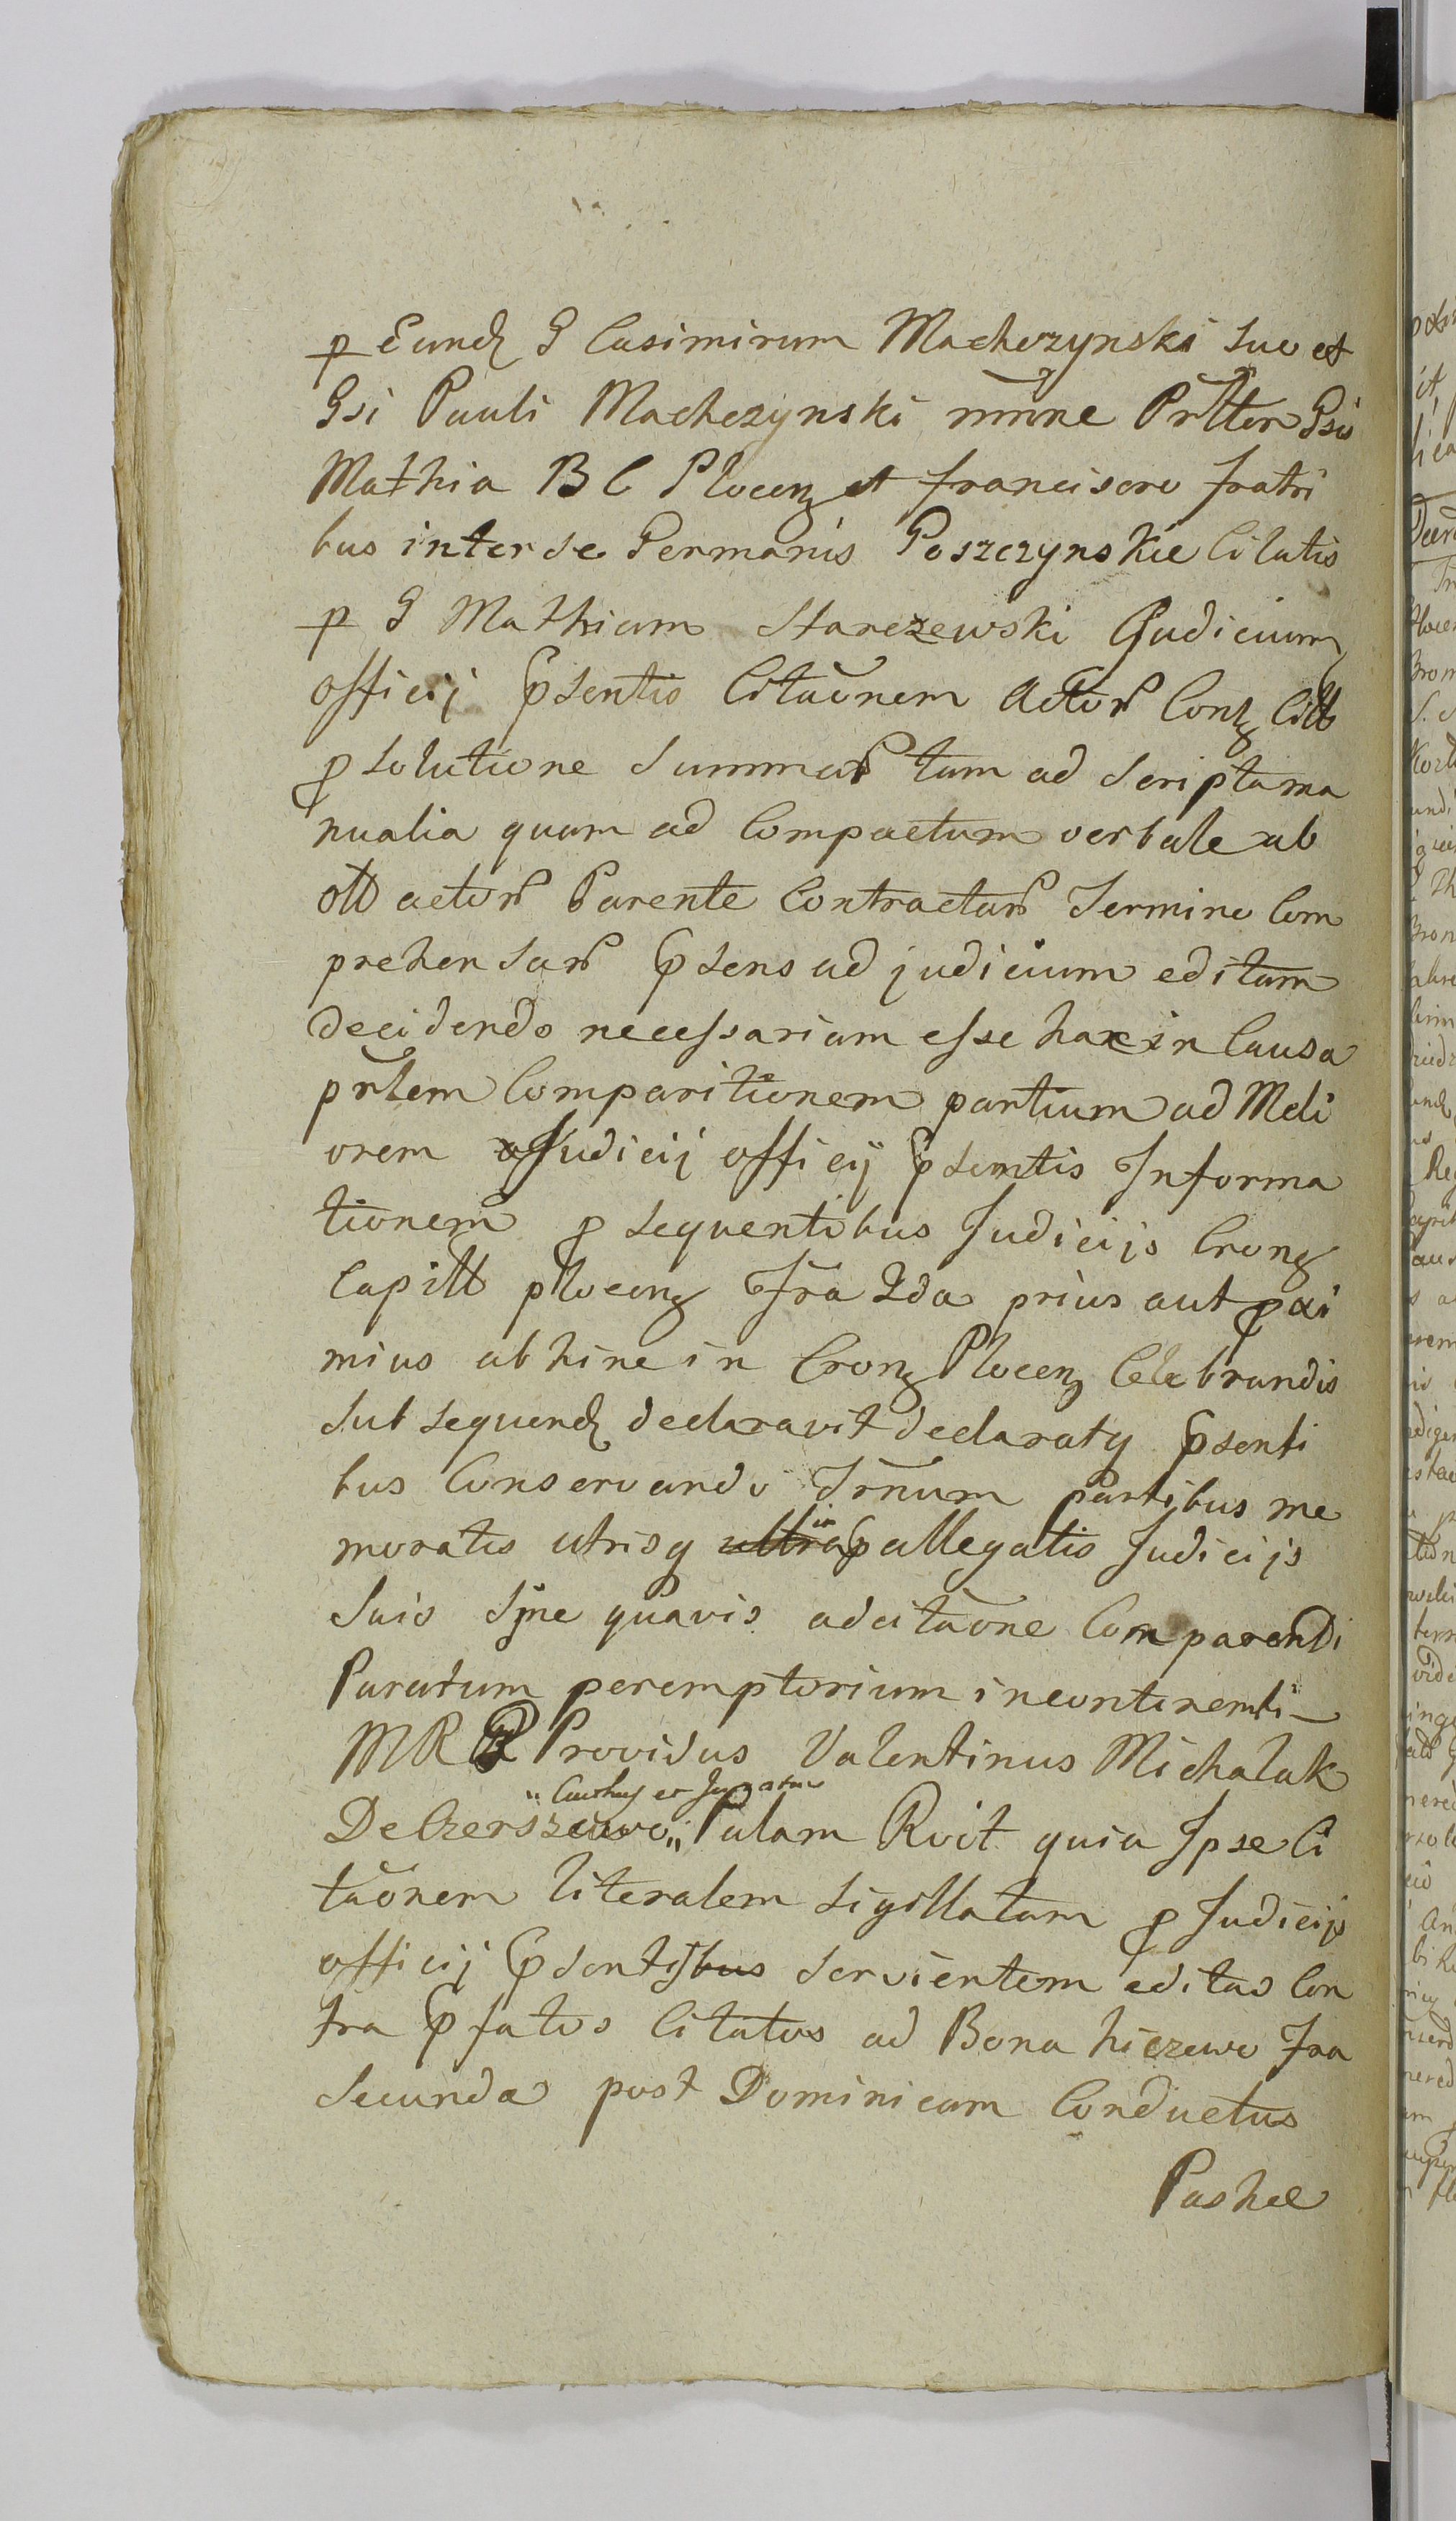 p Eund G Casimirum Machczynski suo et
Gsi Pauli Machczynski nnne Prltter Gsis
Mathia B C Plocen et francisco fratri
bus inter se Germanis Goszczynskie Citatis
p G Mathiam Starczewski Judicium
officij Psentis Citaonem Actor Cont Citt
p solutione Summar tam ad Scripta ma
nualia quam ad Compactum verbale ab
ott actor Parente Contractar Termino Com
prehensar Psens ad judicium editam
decidendo necessariam esse hac in Causa
prlem Comparitionem partium ad Meli
orem Judicij officij Psentis Informa
tionem p sequentibus Judicijs Cron
Capitt plocen Fra 2da prius aut pxi
mius abhinc in Cron Plocen Celebrandis
Subsequend declaravit declaratq Psenti
bus Conservando Trnum partibus me
moratis utrisq in Pallegatis Judicijs
Suis Sine quavis adcitaone Comparendi
Paratum peremptorium incontinenti
MRR Providus Valentinus Michalak
" Curthus et Juratus
De Czerszewo " Palam Rvit quia Ipse Ci
taonem literalem sigillatam p Judicijs
officij Psentibus servientem editas Con
tra Pfatos Citatos ad Bona hiczewo Fra
Secunda post Dominicam Conductus
Paschee